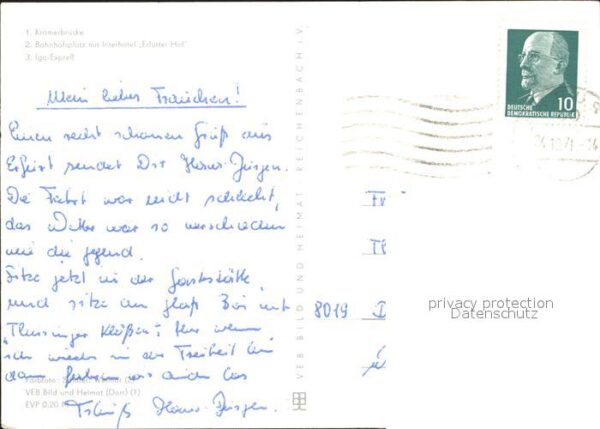 1. Krämerbrücke
2. Bahnhofsplatz mit Interhotel „Erfurter Hof"
3. Iga-Expreß
Mein liebes Frauchen!
Einen recht schönen Gruß aus
Erfurt sendet Dir Hans-Jürgen.
Die Fahrt war nicht schlecht,
das Wetter war so verschieden
wie die Gegend.
Sitze jetzt in der Gaststätte
und sitze am Glas Bier mit
"Thüringer Klößen".
ich wieder in der Freiheit bin
dann fahren wir auch los
Tschüß Hans-Jürgen.
VEB Bild und Heimat (Dorr) (1)
EVP 0,20
VEB BILD UND HEIMAT REICHENBACH i. V.
DEUTSCHE
DEMOKRATISCHE REPUBLIK
10
Fr
8019
privacy protection
Datenschutz